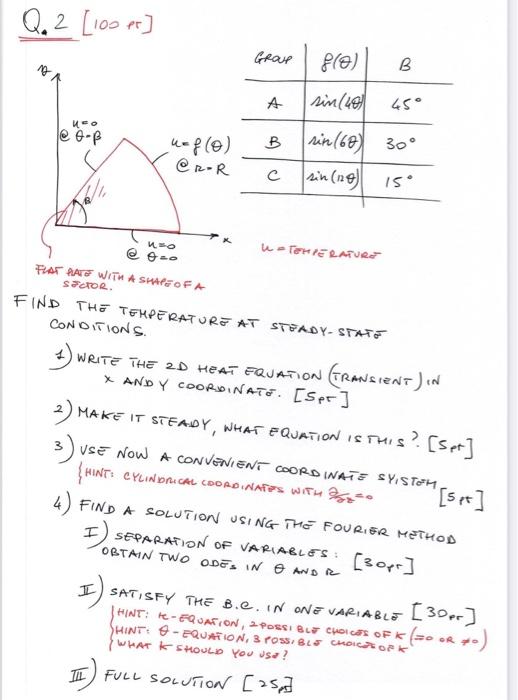 Q.2 [100 pt]
GROUP f(θ) B
A sin(4θ) 45°
B sin(6θ) 30°
C sin(12θ) 15°
y
u=0
@ θ=β
u=f(θ)
@ r=R
β
x
u=0
@ θ=0
u=TEMPERATURE
FLAT PLATE WITH A SHAPE OF A
SECTOR.
FIND THE TEMPERATURE AT STEADY-STATE
CONDITIONS.
1) WRITE THE 2D HEAT EQUATION (TRANSIENT) IN
X AND Y COORDINATE. [5pt]
2) MAKE IT STEADY, WHAT EQUATION IS THIS? [5pt]
3) USE NOW A CONVENIENT COORDINATE SYISTEM
{HINT: CYLINDRICAL COORDINATES WITH ∂/∂z=0 [5pt]
4) FIND A SOLUTION USING THE FOURIER METHOD
I) SEPARATION OF VARIABLES: [30pt]
OBTAIN TWO ODEs IN θ AND R
II) SATISFY THE B.C. IN ONE VARIABLE [30pt]
{HINT: r-EQUATION, 2 POSSIBLE CHOICES OF K (=0 OR ≠0)
{HINT: θ-EQUATION, 3 POSSIBLE CHOICES OF K
{WHAT K SHOULD YOU USE?
III) FULL SOLUTION [25pt]